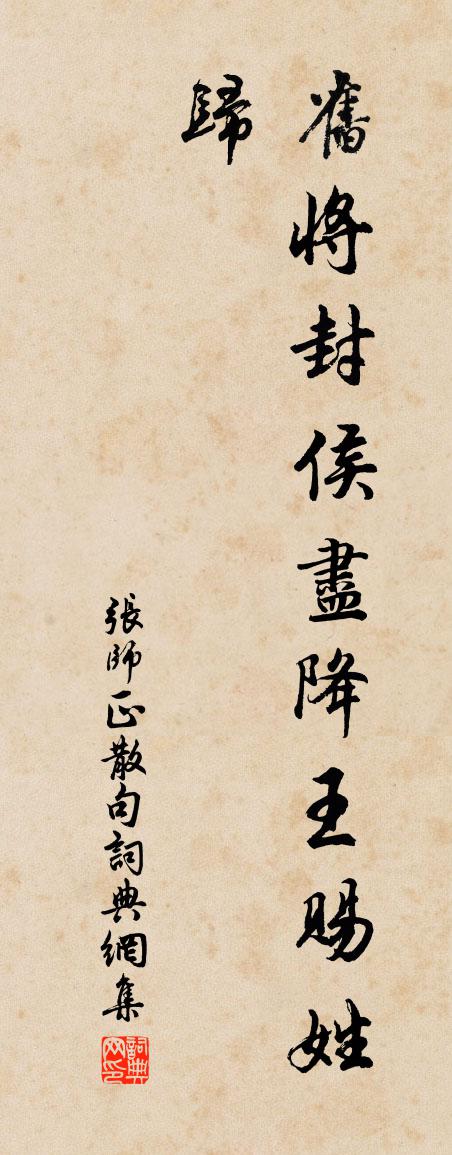 舊將封侯盡降王賜姓
歸
張師正散句詞典網集
詞典
网印